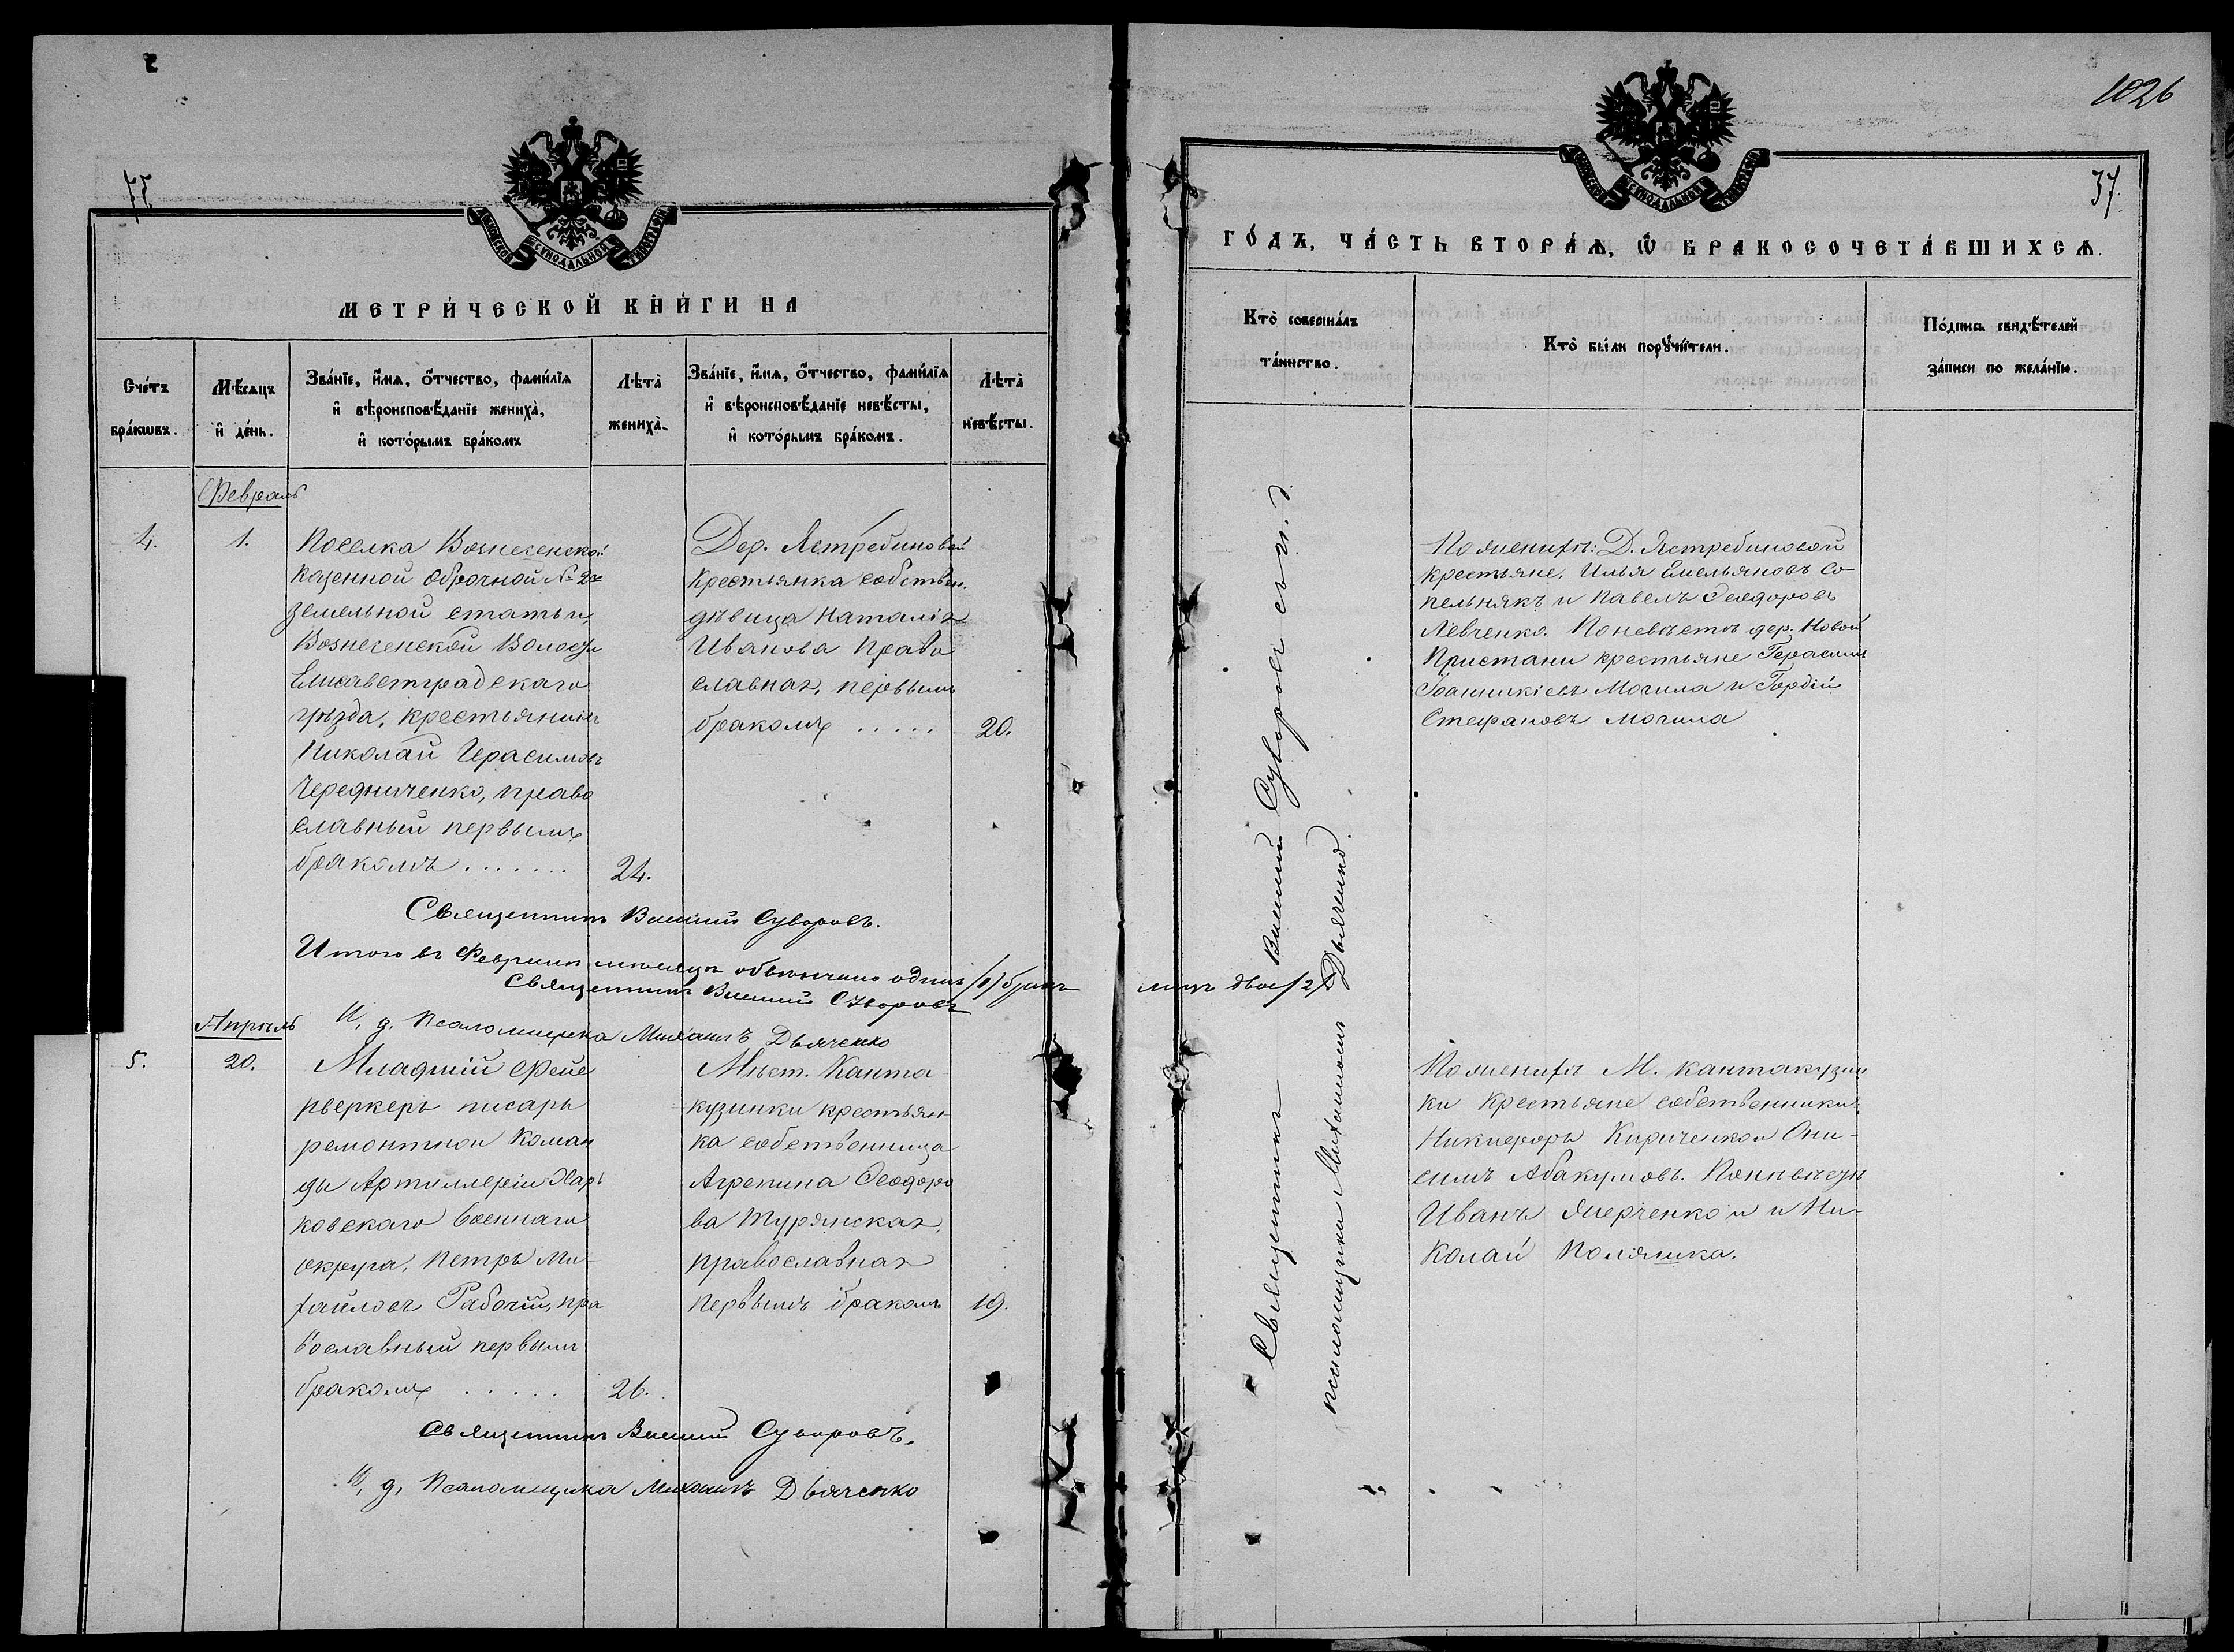 1026
37.
МОСКОВСКОЙ СѴНОДАЛЬНОЙ ТИПОГРАФІИ
МЕТРИ́ЧЕСКОЙ КНИ́ГИ НА
Сче́тъ бра́кѡвъ.
Мѣ́сяцъ и҆ де́нь.
Зва́нїе, и҆́мѧ, ѻ҆́тчество, фами́лїѧ
и҆ вѣроисповѣ́данїе жениха̀,
и҆ кото́рымъ бра́комъ
Лѣта̀ жениха̀.
Зва́нїе, и҆́мѧ, ѻ҆́тчество, фами́лїѧ
и҆ вѣроисповѣ́данїе невѣ́сты,
и҆ кото́рымъ бра́комъ.
Лѣта̀ невѣ́сты.
Февраль
4.
1.
Поселка Вознесенской
казенной оброчной № 2го
земельной статьи
Вознесенской Волости
Елисаветградскаго
уѣзда, крестьянинъ
Николай Герасимовъ
Чередниченко, право
славный первымъ
бракомъ . . . . . . .
24.
Дер. Ястребиновой
крестьянка собствен.
дѣвица Наталія
Иванова Право
славная, первымъ
бракомъ . . . . .
20.
Священникъ Василій Суворовъ.
Итого въ Февралѣ мѣсяцѣ обвѣнчано одинъ /1/ бракъ лицъ двое /2/
Священникъ Василій Суворовъ
И, д. Псаломщика Михаилъ Дьяченко
Апрѣль
5.
20.
Младшій Фейе
рверкеръ писарь
ремонтной Коман
ды Артиллеріи Харь
ковскаго военнаго
округа, Петръ Ми-
хайловъ Рабочій, пра
вославный первымъ
бракомъ . . . . .
26.
Мѣст. Канта
кузинки крестьян
ка собственница
Агрепина Ѳеодоро
ва Турянская,
православная
первымъ бракомъ
19.
Священникъ Василій Суворовъ.
И, д, Псаломщика Михаилъ Дьяченко
МОСКОВСКОЙ СѴНОДАЛЬНОЙ ТИПОГРАФІИ
ГО́ДЪ, ЧА́СТЬ ВТОРА́Ѧ, Ѽ БРАКОСОЧЕТА́ВШИХСѦ.
Кто̀ соверша́лъ та́инство.
Кто̀ бы́ли порꙋчи́тели.
По́дпись свидѣ́телей
за́писи по жела́нїю.
Священникъ Василій Суворовъ съ и. д.
псаломщика Михаиломъ Дьяченко.
По женихѣ: Д. Ястребиновой
крестьяне, Илья Емельяновъ Со
пельнякъ и Павелъ Ѳеодоровъ
Левченко. По невѣстѣ дер. Новой
Пристани крестьяне Герасимъ
Іоанникіевъ Могила и Гордій
Стефановъ Могила
По женихѣ М. Кантакузин
ки Крестьяне собственники:
Никифоръ Кириченко и Они-
симъ Абакумовъ. По невѣстѣ
Иванъ и Ни-
колай Полянка.